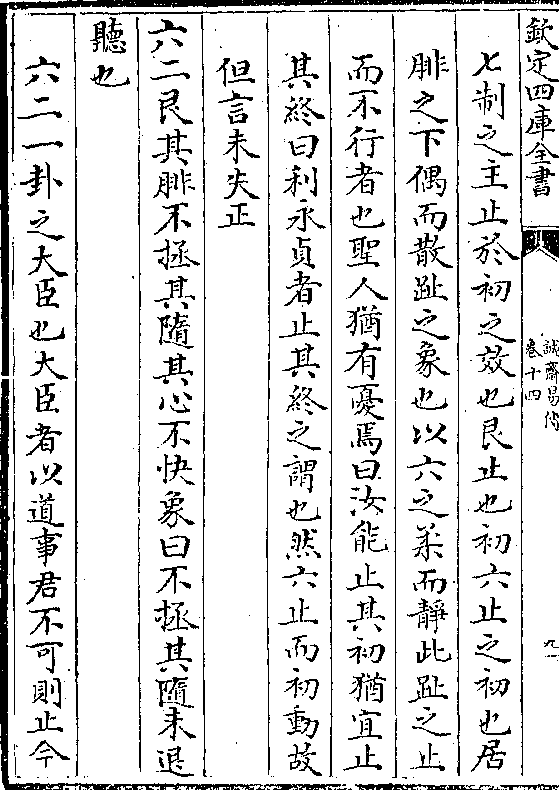 欽定四庫全書
誠齋易傳
卷十四
九
七制之主止於初之效也艮止也初六止之初也居
腓之下偶而散趾之象也以六之柔而靜此趾之止
而不行者也聖人猶有憂焉曰汝能止其初猶宜止
其終曰利永貞者止其終之謂也然六止而初動故
但言未失正
六二艮其腓不拯其隨其心不快象曰不拯其隨未退
聽也
六二一卦之大臣也大臣者以道事君不可則止今